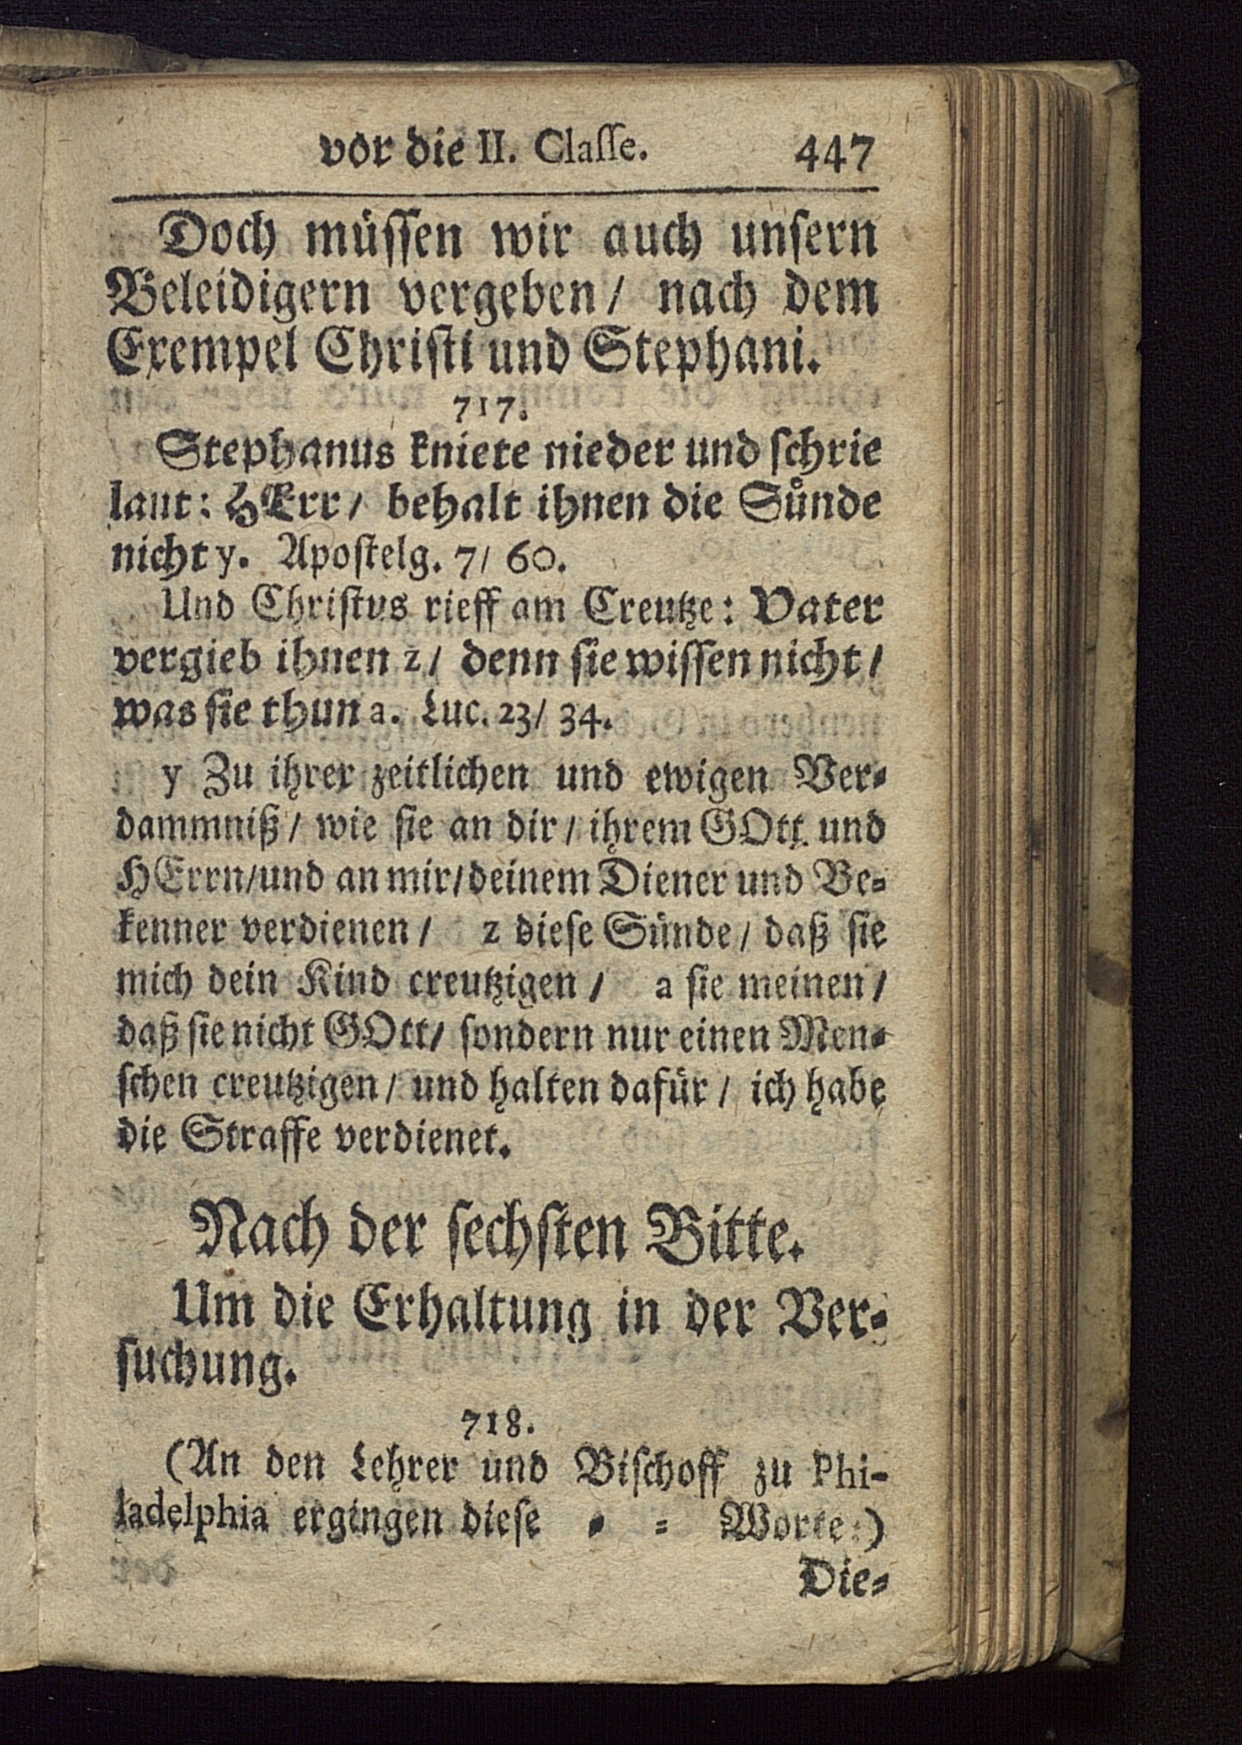 vor die II. Classe. 447
Doch müssen wir auch unsern
Beleidigern vergeben / nach dem
Exempel Christi und Stephani.
717.
Stephanus kniete nieder und schrie
laut: HErr / behalt ihnen die Sünde
nicht y. Apostelg. 7 / 60.
Und Christus rieff am Creutze: Vater
vergieb ihnen z / denn sie wissen nicht /
was sie thun a. Luc. 23 / 34.
y Zu ihrer zeitlichen und ewigen Ver-
dammniß / wie sie an dir / ihrem GOtt und
HErrn / und an mir / deinem Diener und Be-
kenner verdienen / z diese Sünde / daß sie
mich dein Kind creutzigen / a sie meinen /
daß sie nicht GOtt / sondern nur einen Men-
schen creutzigen / und halten dafür / ich habe
die Straffe verdienet.
Nach der sechsten Bitte.
Um die Erhaltung in der Ver-
suchung.
718.
(An den Lehrer und Bischoff zu Phi-
ladelphia ergingen diese = = Worte:)
Die-